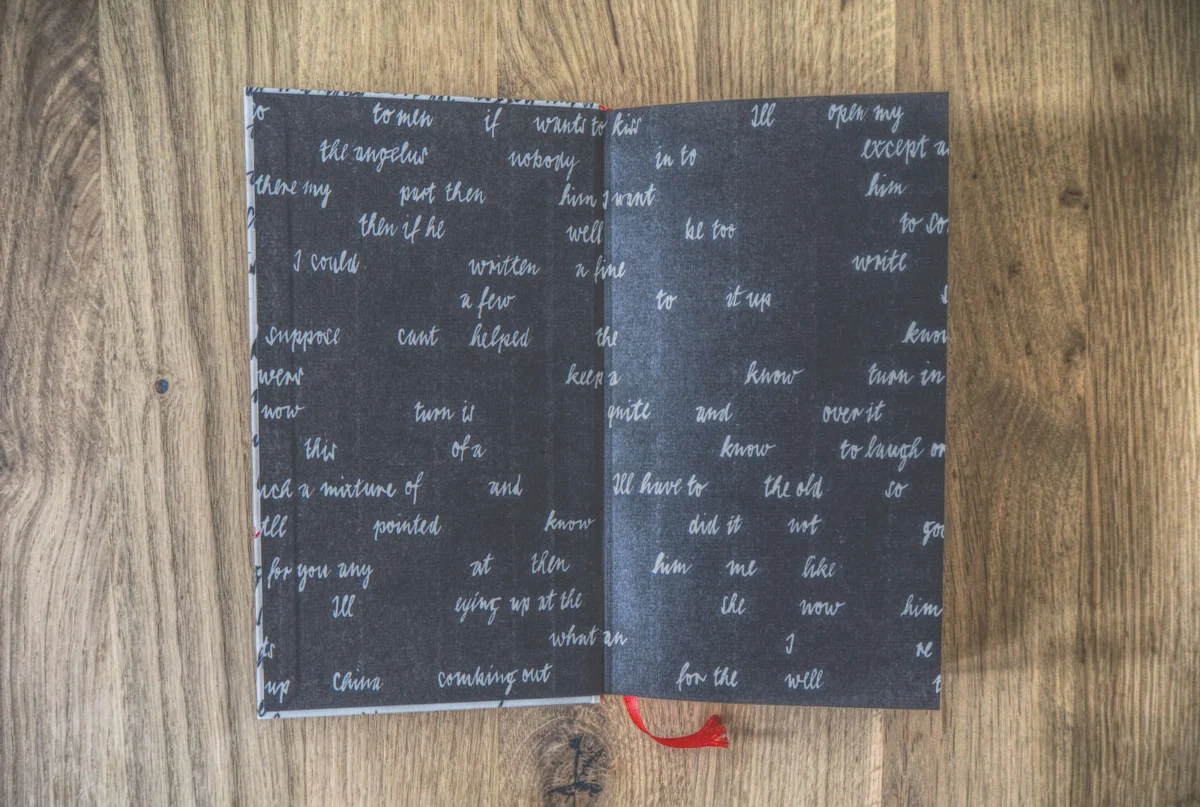 to men if wants to kiss Ill open my
the angelus nobody in to except
there my part then him I want him
then if he well be too to
I could written a fine write
a few to it up
suppose cant helped the
were keep a know turn in
now turn is quite and over it
this of a know to laugh or
a mixture of and Ill have to the old so
pointed know did it not
for you any at then him me like
Ill eying up at the she now him
what an I
up china combing out for the well